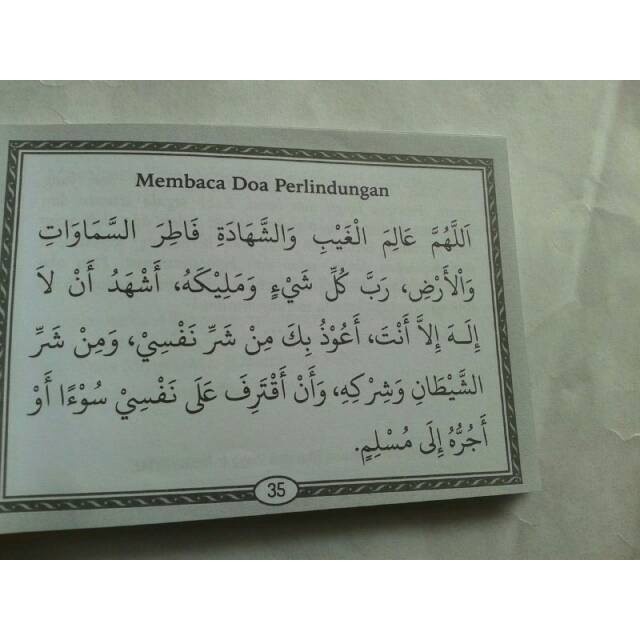 Membaca Doa Perlindungan
اَللَّهُمَّ عَالِمَ الْغَيْبِ وَالشَّهَادَةِ فَاطِرَ السَّمَاوَاتِ
وَاْلأَرْضِ، رَبَّ كُلِّ شَيْءٍ وَمَلِيْكَهُ، أَشْهَدُ أَنْ لاَ
إِلَـهَ إِلاَّ أَنْتَ، أَعُوْذُ بِكَ مِنْ شَرِّ نَفْسِيْ، وَمِنْ شَرِّ
الشَّيْطَانِ وَشِرْكِهِ، وَأَنْ أَقْتَرِفَ عَلَى نَفْسِيْ سُوْءًا أَوْ
أَجُرُّهُ إِلَى مُسْلِمٍ.
35